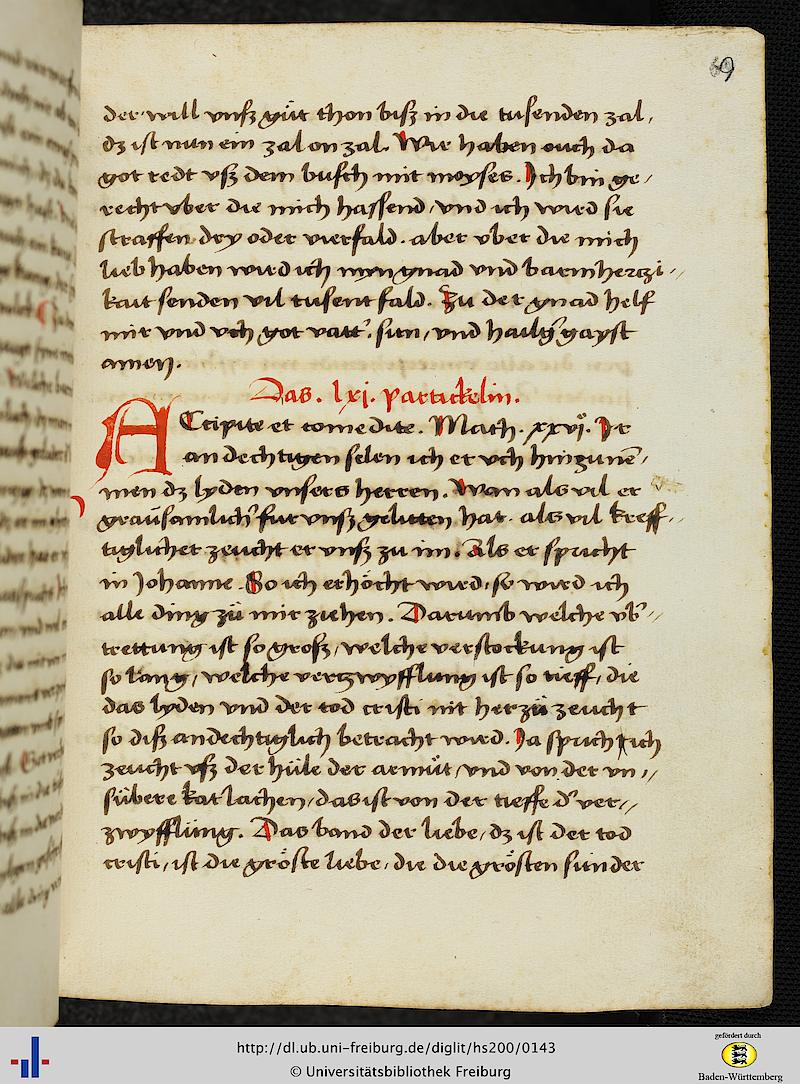 69
der will vnß gůt thon biß in die tusenden zal,
dz ist nun ein zal on zal. Wir haben ouch da
got redt vß dem busch mit moyses. Ich bin ge-
recht vber die mich hassend, vnd ich wird sie
straffen dry oder vierfald. aber vber die mich
lieb haben wird ich myn gnad vnd barmhertzi-
kait senden vil tusent fald. Zu der gnad helf
mir vnd vch got vatt', sun, vnd hailg' gayst
amen.
Das. lxj. partickelin.
ACcipite et comedite. Math. xxvj. Ir
andechtigen selen ich er vch hinzunē-
men dz lyden vnsers herren. Wan als vil er
graůsamlich' fur vnß gelitten hat. als vil kreff-
tiglicher zeucht er vnß zu im. Als er spricht
in Johanne. So ich erhöcht wird, so wird ich
alle ding zů mir ziehen. Darumb welche vb'-
trettung ist so groß, welche verstockung ist
so lang, welche vertzwyfflung ist so tieff, die
das lyden vnd der tod cristi nit herzů zeucht
so diß andechtiglich betracht wird. Ja sprich ich
zeucht vß der hüle der armůt, vnd von der vn-
sübere kat lachen, das ist von der tieffe d' ver-
zwyfflüng. Das band der liebe, dz ist der tod
cristi, ist die gröste liebe, die die grösten sünder
http://dl.ub.uni-freiburg.de/diglit/hs200/0143
© Universitätsbibliothek Freiburg
gefördert durch
Baden-Württemberg